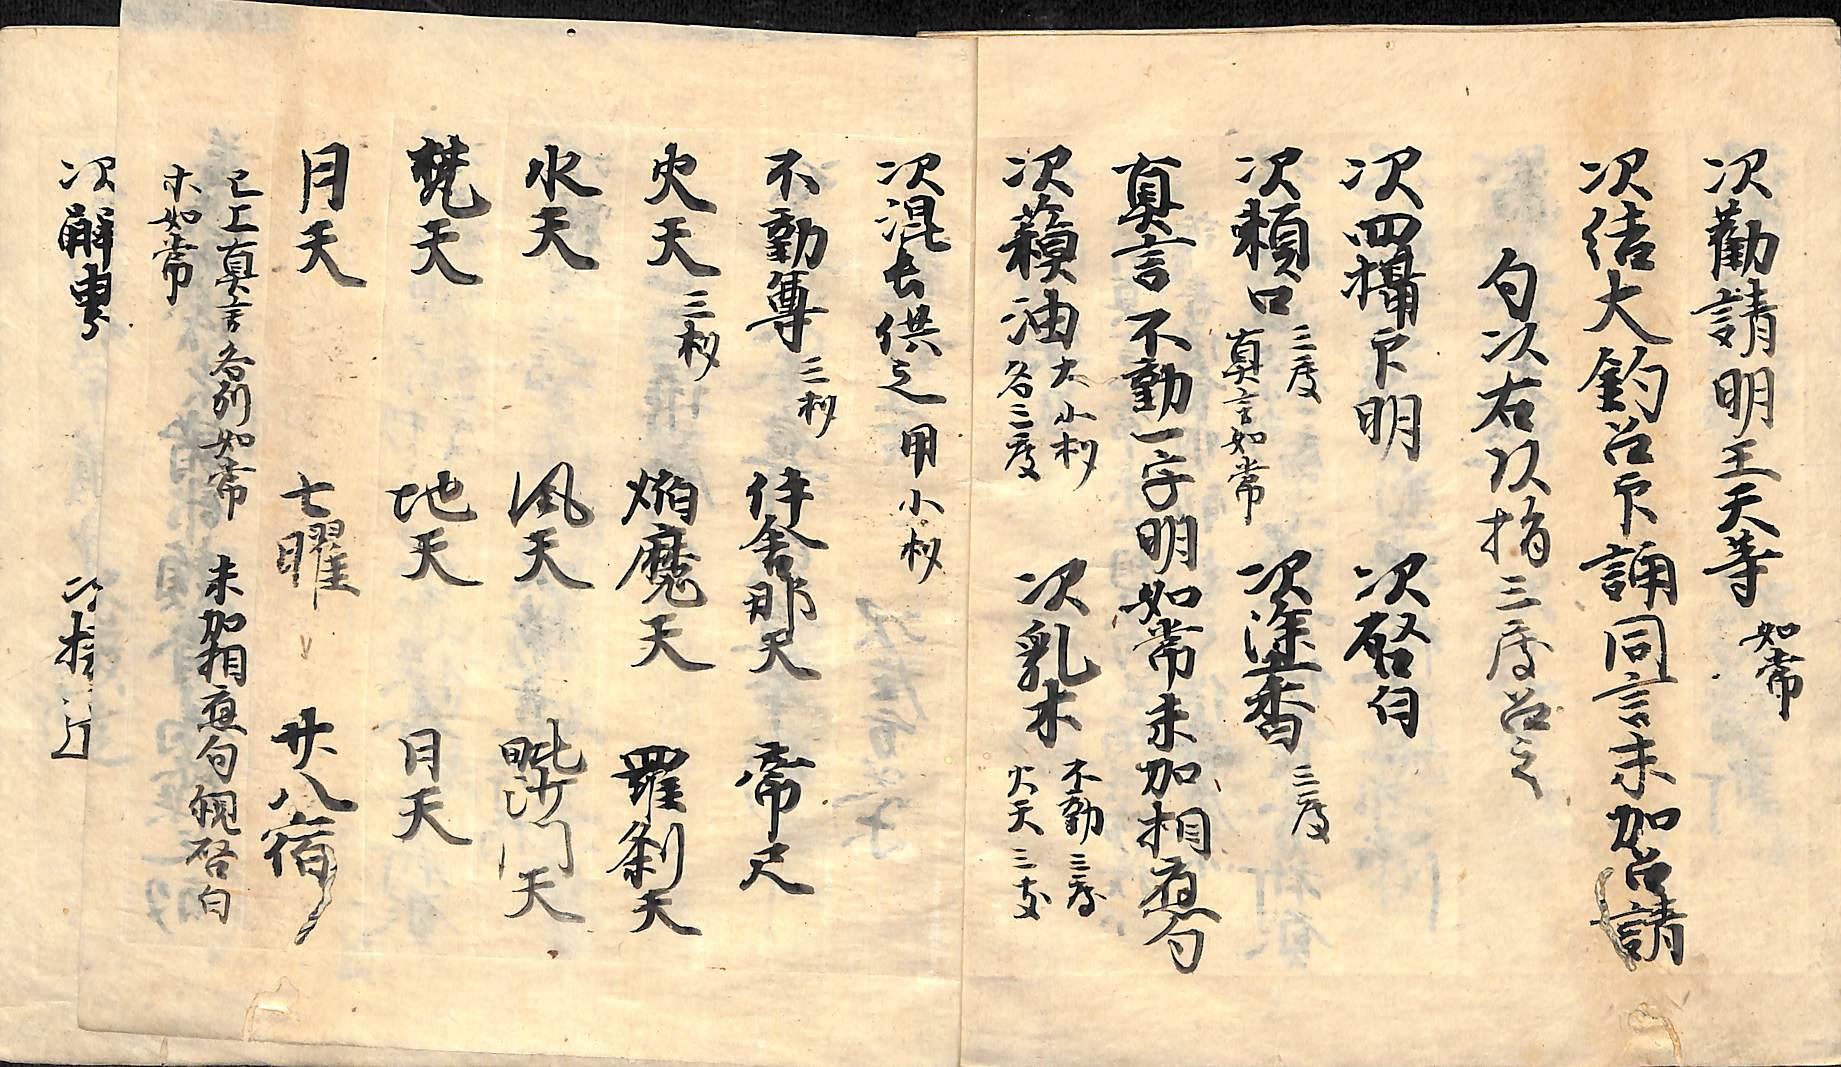 次勸請明王天等 如常
次結大鈎召印誦同言末加召請
句次右以指三度召之
次四攝印明 次啓白
次漱口 三度 真言如常 次塗香 三度
真言不動一字明如常末加相應句
次蘓油 大小杓 各三度 次乳木 不動三度 火天三支
次混屯供之 用小杓
不動尊 三杓 伊舎那天 帝尺
火天 三杓 焔魔天 羅刹天
水天 風天 毗沙門天
梵天 地天 月天
月天 七曜 廿八宿
已上真言各別如常 末加相應句観啓白
木如常
次解界 次撥遣